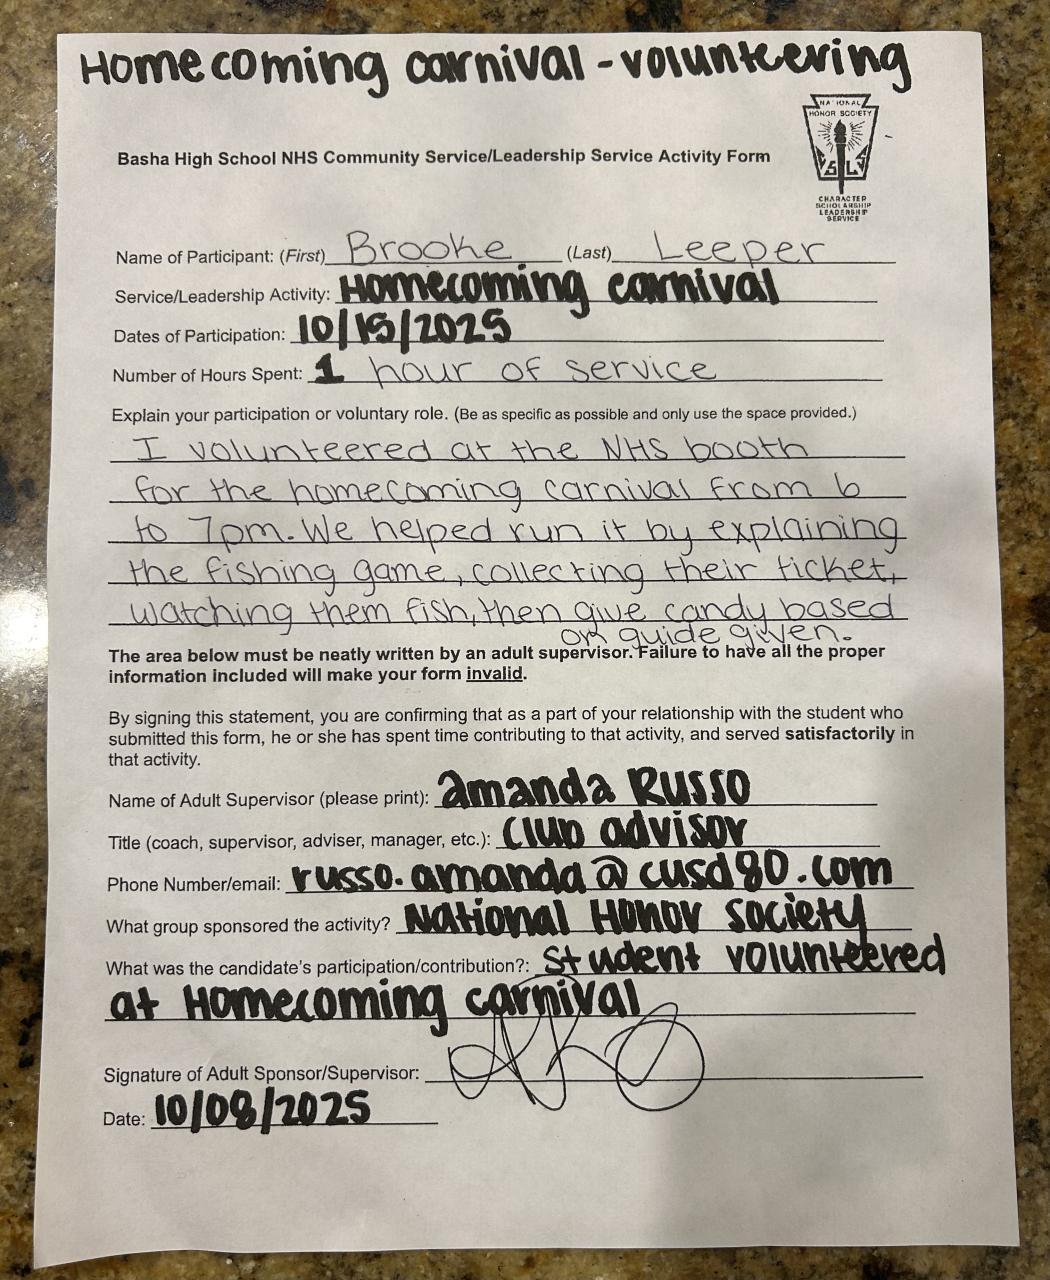 Homecoming carnival - volunteering
NATIONAL
HONOR SOCIETY
S L
CHARACTER
SCHOLARSHIP
LEADERSHIP
SERVICE
Basha High School NHS Community Service/Leadership Service Activity Form
Name of Participant: (First) Brooke (Last) Leeper
Service/Leadership Activity: Homecoming carnival
Dates of Participation: 10/15/2025
Number of Hours Spent: 1 hour of service
Explain your participation or voluntary role. (Be as specific as possible and only use the space provided.)
I volunteered at the NHS booth
for the homecoming carnival from 6
to 7pm. We helped run it by explaining
the fishing game, collecting their ticket,
watching them fish, then give candy based
on guide given.
The area below must be neatly written by an adult supervisor. Failure to have all the proper
information included will make your form invalid.
By signing this statement, you are confirming that as a part of your relationship with the student who
submitted this form, he or she has spent time contributing to that activity, and served satisfactorily in
that activity.
Name of Adult Supervisor (please print): amanda Russo
Title (coach, supervisor, adviser, manager, etc.): Club advisor
Phone Number/email: russo.amanda@cusd80.com
What group sponsored the activity? National Honor Society
What was the candidate's participation/contribution?: Student volunteered
at Homecoming carnival
Signature of Adult Sponsor/Supervisor:
Date: 10/08/2025